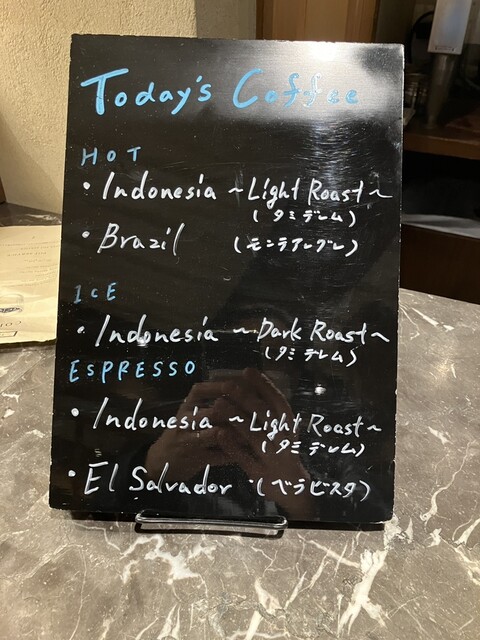 Today's Coffee
HOT
・Indonesia ~Light Roast~
(タミデレム)
・Brazil (モンテアレグレ)
ICE
・Indonesia ~Dark Roast~
(タミデレム)
ESPRESSO
・Indonesia ~Light Roast~
(タミデレム)
・El Salvador (ベラビスタ)